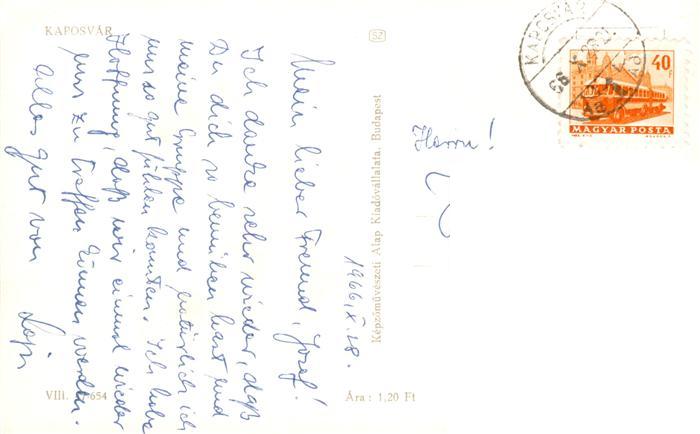 KAPOSVÁR
SZ
1966, X. 28.
Mein lieber Freund, Josef!
Ich danke sehr wieder, daß
Du dich so bemühen hast und
meine Gruppe und natürlich ich
uns so gut fühlen konnten. Ich habe
Hoffnung, daß wir einmal wieder
uns zu treffen können werden.
Alles gut von
VIII. 654
Képzőművészeti Alap Kiadóvállalata, Budapest
Ára: 1,20 Ft
Herrn!
KAPOSVÁR
66 X. 28 21
40 f
MAGYAR POSTA